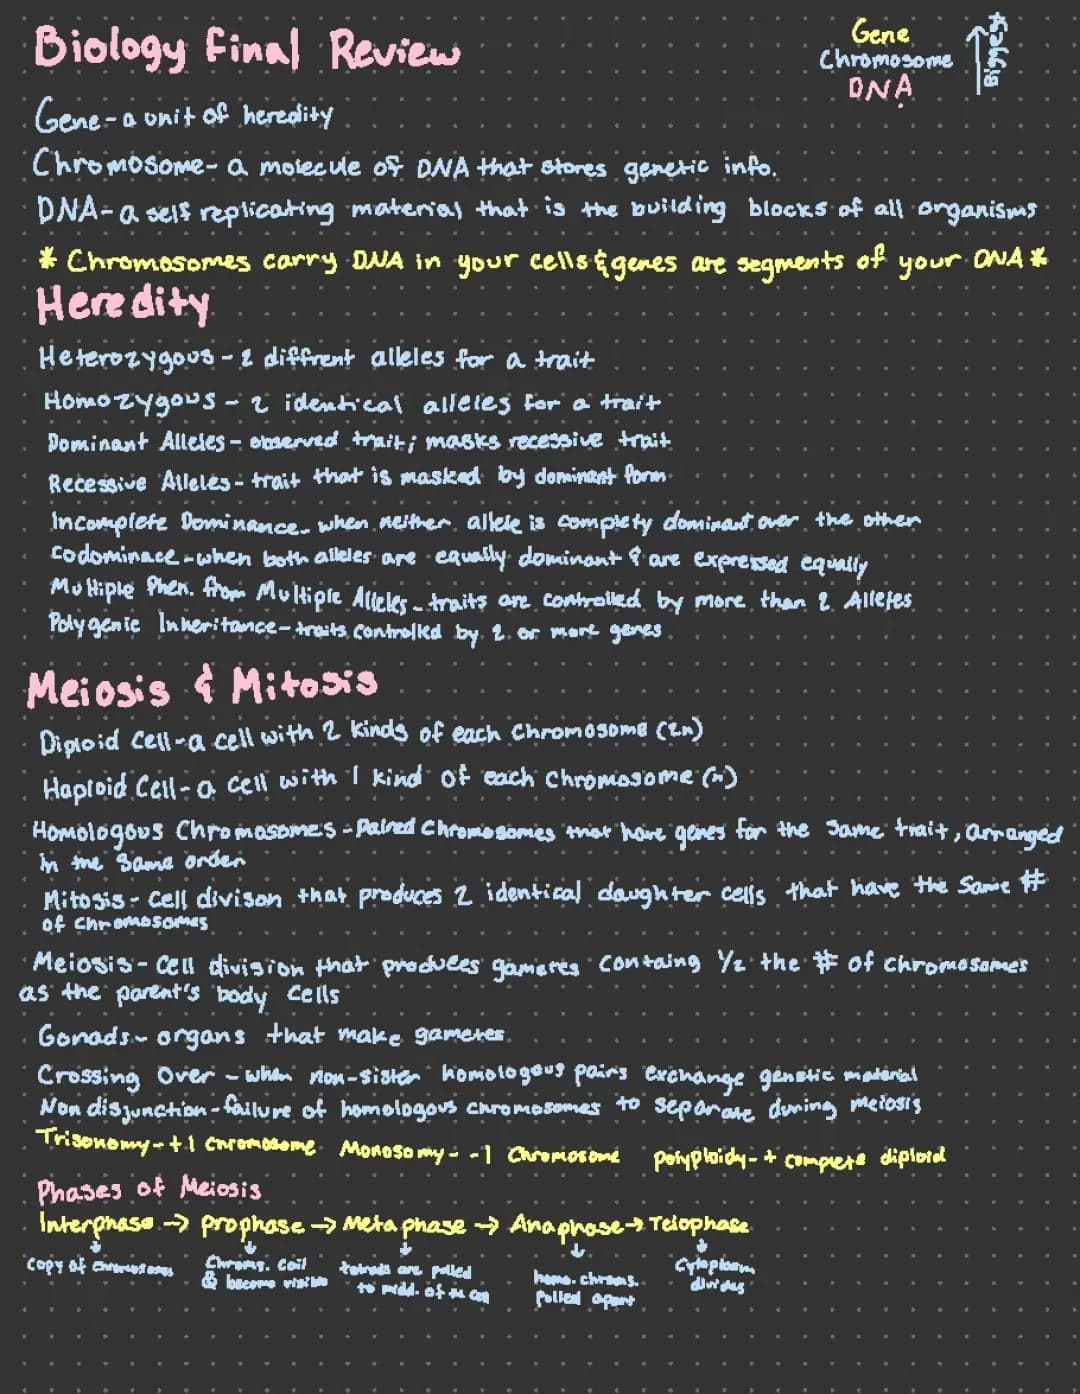 Biology Final Review
Gene
Chromosome
DNA
Biggest
Gene- a unit of heredity
Chromosome- a molecule of DNA that stores genetic info.
DNA- a self replicating material that is the building blocks of all organisms
* Chromosomes carry DNA in your cells & genes are segments of your DNA *
Heredity
Heterozygous - 2 diffrent alleles for a trait
Homozygous - 2 identical alleles for a trait
Dominant Alleles - observed trait; masks recessive trait
Recessive Alleles - trait that is masked by dominant form
Incomplete Dominance - when neither allele is complety dominant over the other
Codominace - when both alleles are equally dominant & are expressed equally
Multiple Phen. from Multiple Alleles - traits are controlled by more than 2 Alleles
Polygenic Inheritance - traits controlled by 2 or more genes
Meiosis & Mitosis
Diploid Cell - a cell with 2 kinds of each chromosome (2n)
Haploid Cell - a cell with 1 kind of each chromosome (n)
Homologous Chromosomes - Paired Chromosomes that have genes for the same trait, arranged
in the same order
Mitosis - Cell divison that produces 2 identical daughter cells that have the same #
of chromosomes
Meiosis - cell division that produces gametes containg 1/2 the # of chromosomes
as the parent's body cells
Gonads - organs that make gametes
Crossing Over - when non-sister homologous pairs exchange genetic material
Nondisjunction - failure of homologous chromosomes to separate during meiosis
Trisonomy - +1 chromosome Monosomy - -1 Chromosome polyploidy - + complete diploid
Phases of Meiosis
Interphase → prophase → Metaphase → Anaphase → Telophase
↓ ↓ ↓ ↓ ↓
Copy of chromosomes Chroms. coil tetrads are pulled homo. chroms. Cytoplasm
& become visible to midd. of the cell Pulled apart divides